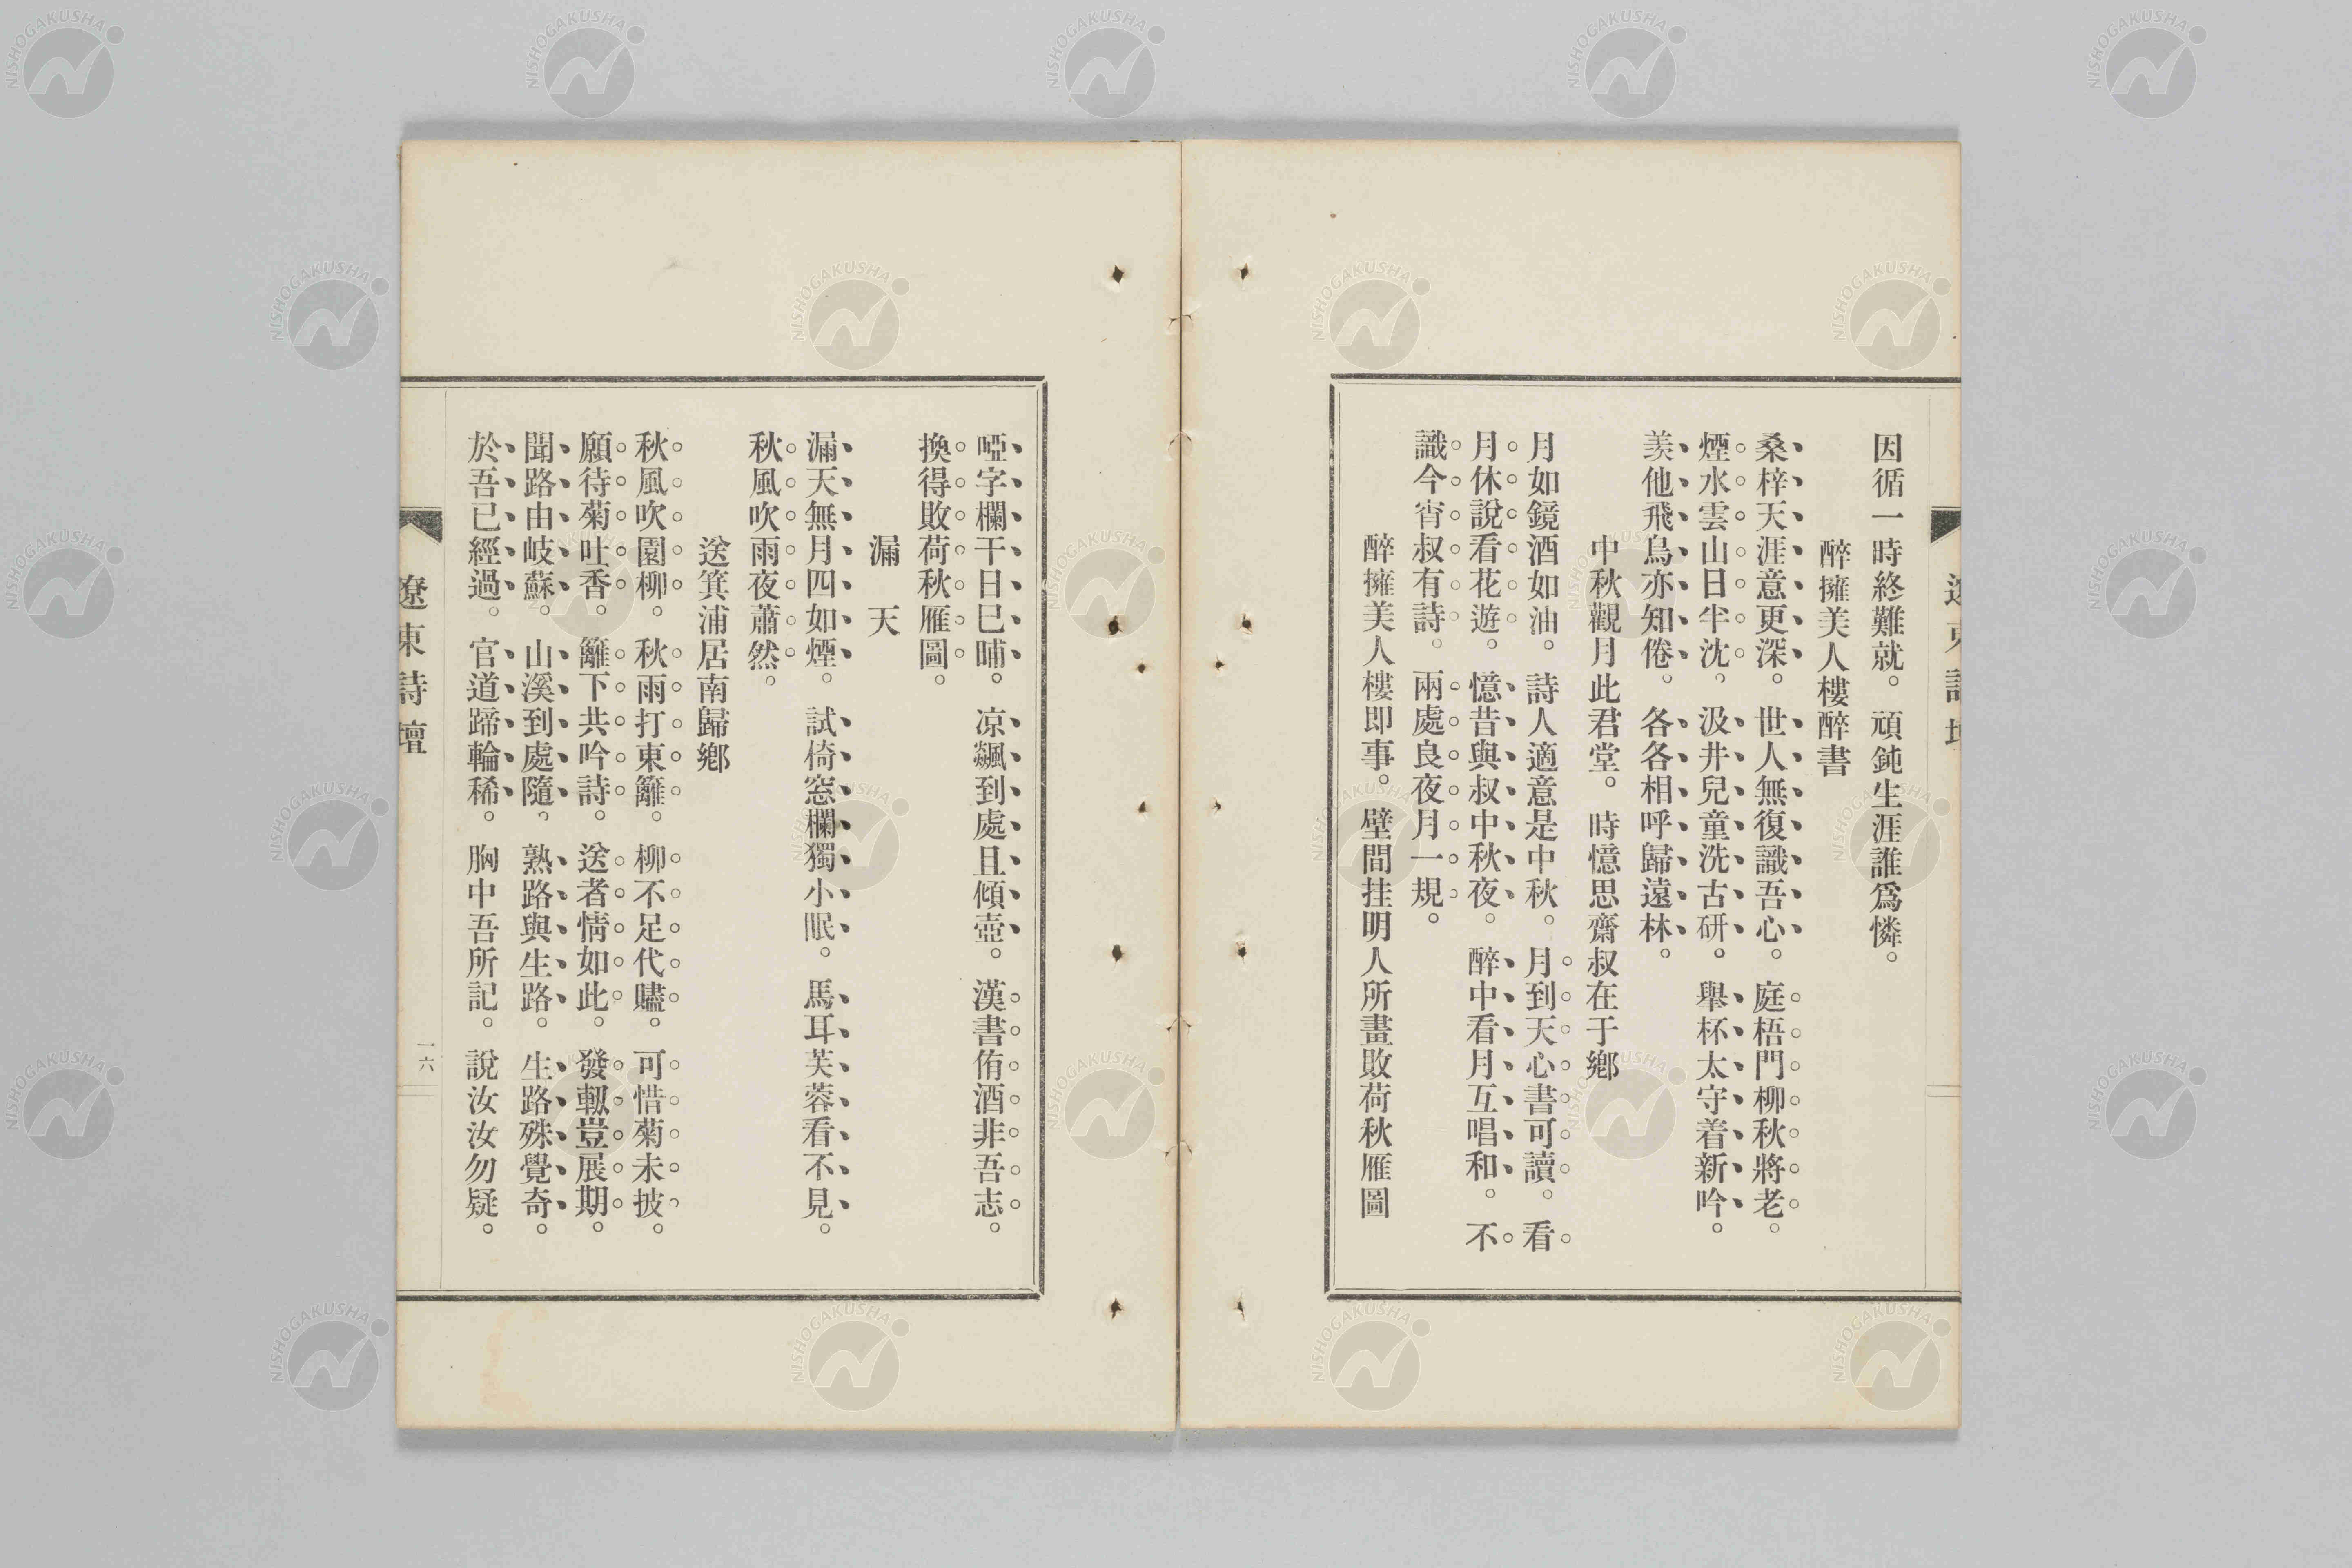 因循一時終難就。頑鈍生涯誰爲憐。
醉擁美人樓醉書
桑梓天涯意更深。世人無復識吾心。庭梧門柳秋將老。
煙水雲山日半沈。汲井兒童洗古硏。舉杯太守着新吟。
羨他飛鳥亦知倦。各各相呼歸遠林。
中秋觀月此君堂。時憶思齋叔在于鄕
月如鏡酒如油。詩人適意是中秋。月到天心書可讀。看
月休說看花遊。憶昔與叔中秋夜。醉中看月互唱和。不
識今宵叔有詩。兩處良夜月一規。
醉擁美人樓即事。壁間挂明人所畫敗荷秋雁圖
啞字欄干日已晡。凉飈到處且傾壺。漢書侑酒非吾志。
換得敗荷秋雁圖。
漏天
漏天無月四如煙。試倚窓欄獨小眠。馬耳芙蓉看不見。
秋風吹雨夜蕭然。
送箕浦居南歸鄕
秋風吹園柳。秋雨打東籬。柳不足代贐。可惜菊未披。
願待菊吐香。籬下共吟詩。送者情如此。發軔豈展期。
聞路由岐蘇。山溪到處隨。熟路與生路。生路殊覺奇。
於吾已經過。官道蹄輪稀。胸中吾所記。說汝汝勿疑。
遼東詩壇
一六
NISHOGAKUSHA